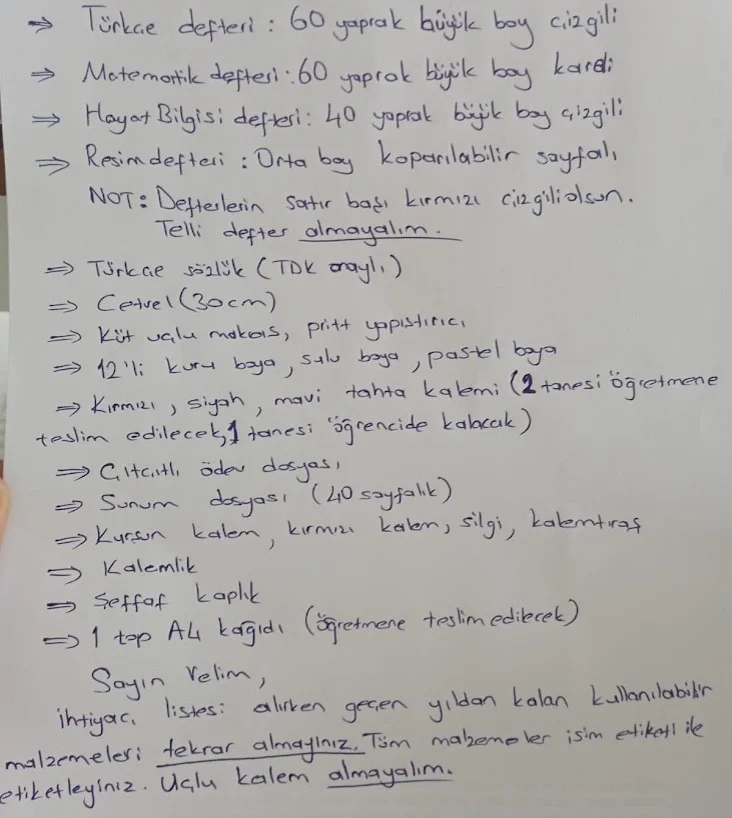 ⇒ Türkçe defteri : 60 yaprak büyük boy çizgili
⇒ Matematik defteri : 60 yaprak büyük boy kareli
⇒ Hayat Bilgisi defteri : 40 yaprak büyük boy çizgili
⇒ Resim defteri : Orta boy koparılabilir sayfalı
NOT : Defterlerin satır başı kırmızı çizgili olsun.
Telli defter almayalım.
⇒ Türkçe sözlük (TDK onaylı)
⇒ Cetvel (30cm)
⇒ Küt uçlu makas, pritt yapıştırıcı
⇒ 12'li kuru boya, sulu boya, pastel boya
⇒ Kırmızı, siyah, mavi tahta kalemi (2 tanesi öğretmene
teslim edilecek, 1 tanesi öğrencide kalacak)
⇒ Çıtçıtlı ödev dosyası
⇒ Sunum dosyası (40 sayfalık)
⇒ Kurşun kalem, kırmızı kalem, silgi, kalemtıraş
⇒ Kalemlik
⇒ Şeffaf kaplık
⇒ 1 top A4 kağıdı (öğretmene teslim edilecek)
Sayın Velim,
ihtiyaç listesi alırken geçen yıldan kalan kullanılabilir
malzemeleri tekrar almayınız. Tüm malzemeler isim etiketi ile
etiketleyiniz. Uçlu kalem almayalım.